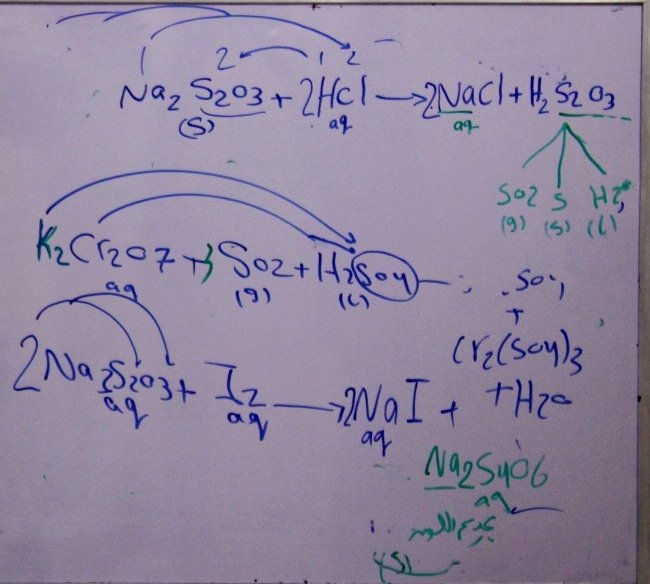 1 2 1 2
Na2 S2O3 + 2HCl → 2NaCl + H2 S2O3
(S) aq aq
SO2 S H2
(g) (S) (L)
K2Cr2O7 + 3 SO2 + H2SO4 SO4
aq (g) (L) +
Cr2(SO4)3
+H2O
2Na2S2O3 + I2 → 2NaI +
aq aq aq
Na2S4O6
aq
عديم اللون